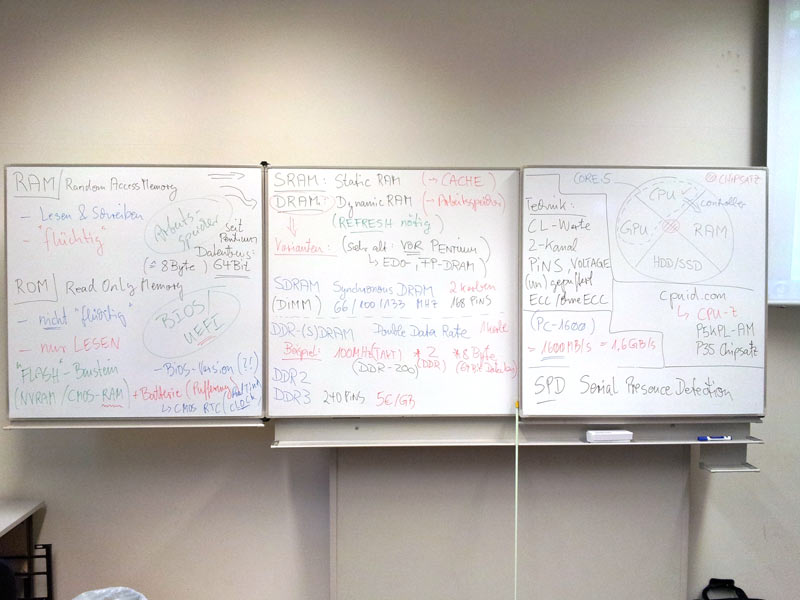 RAM / Random Access Memory
- Lesen & Schreiben
- "flüchtig"
Arbeits-
speicher
seit
Pentium
Datenbus:
(≙ 8Byte) 64Bit
ROM / Read Only Memory
- nicht "flüchtig"
- nur LESEN
BIOS/
UEFI
"FLASH"-Baustein
- BIOS-Version (?!)
(NVRAM / CMOS-RAM) + Batterie (Pufferung)
↳ CMOS RTC (CLOCK)
SRAM: Static RAM (→ CACHE)
DRAM: Dynamic RAM (→ Arbeitsspeicher)
(REFRESH nötig)
Varianten: (sehr alt: VOR PENTIUM)
↳ EDO-, FP-DRAM)
SDRAM Synchronous DRAM 2 Kerben
(DIMM) 66/100/133 MHz 168 PINS
DDR-(S)DRAM Double Data Rate 1 Kerbe
Beispiel: 100MHz (TAKT) * 2 * 8 Byte
(DDR-200) (DDR) (64Bit Datenbus)
DDR2
DDR3 240 PINS 5€/GB
CORE i5
CHIPSATZ
CPU
Controller
GPU
RAM
HDD/SSD
Technik:
CL-Werte
2-Kanal
PINS, VOLTAGE
(un)gepuffert
ECC/ohne ECC
cpuid.com
↳ CPU-Z
P5KPL-AM
P35 Chipsatz
(PC-1600)
= 1600MB/s = 1,6GB/s
SPD Serial Presence Detection